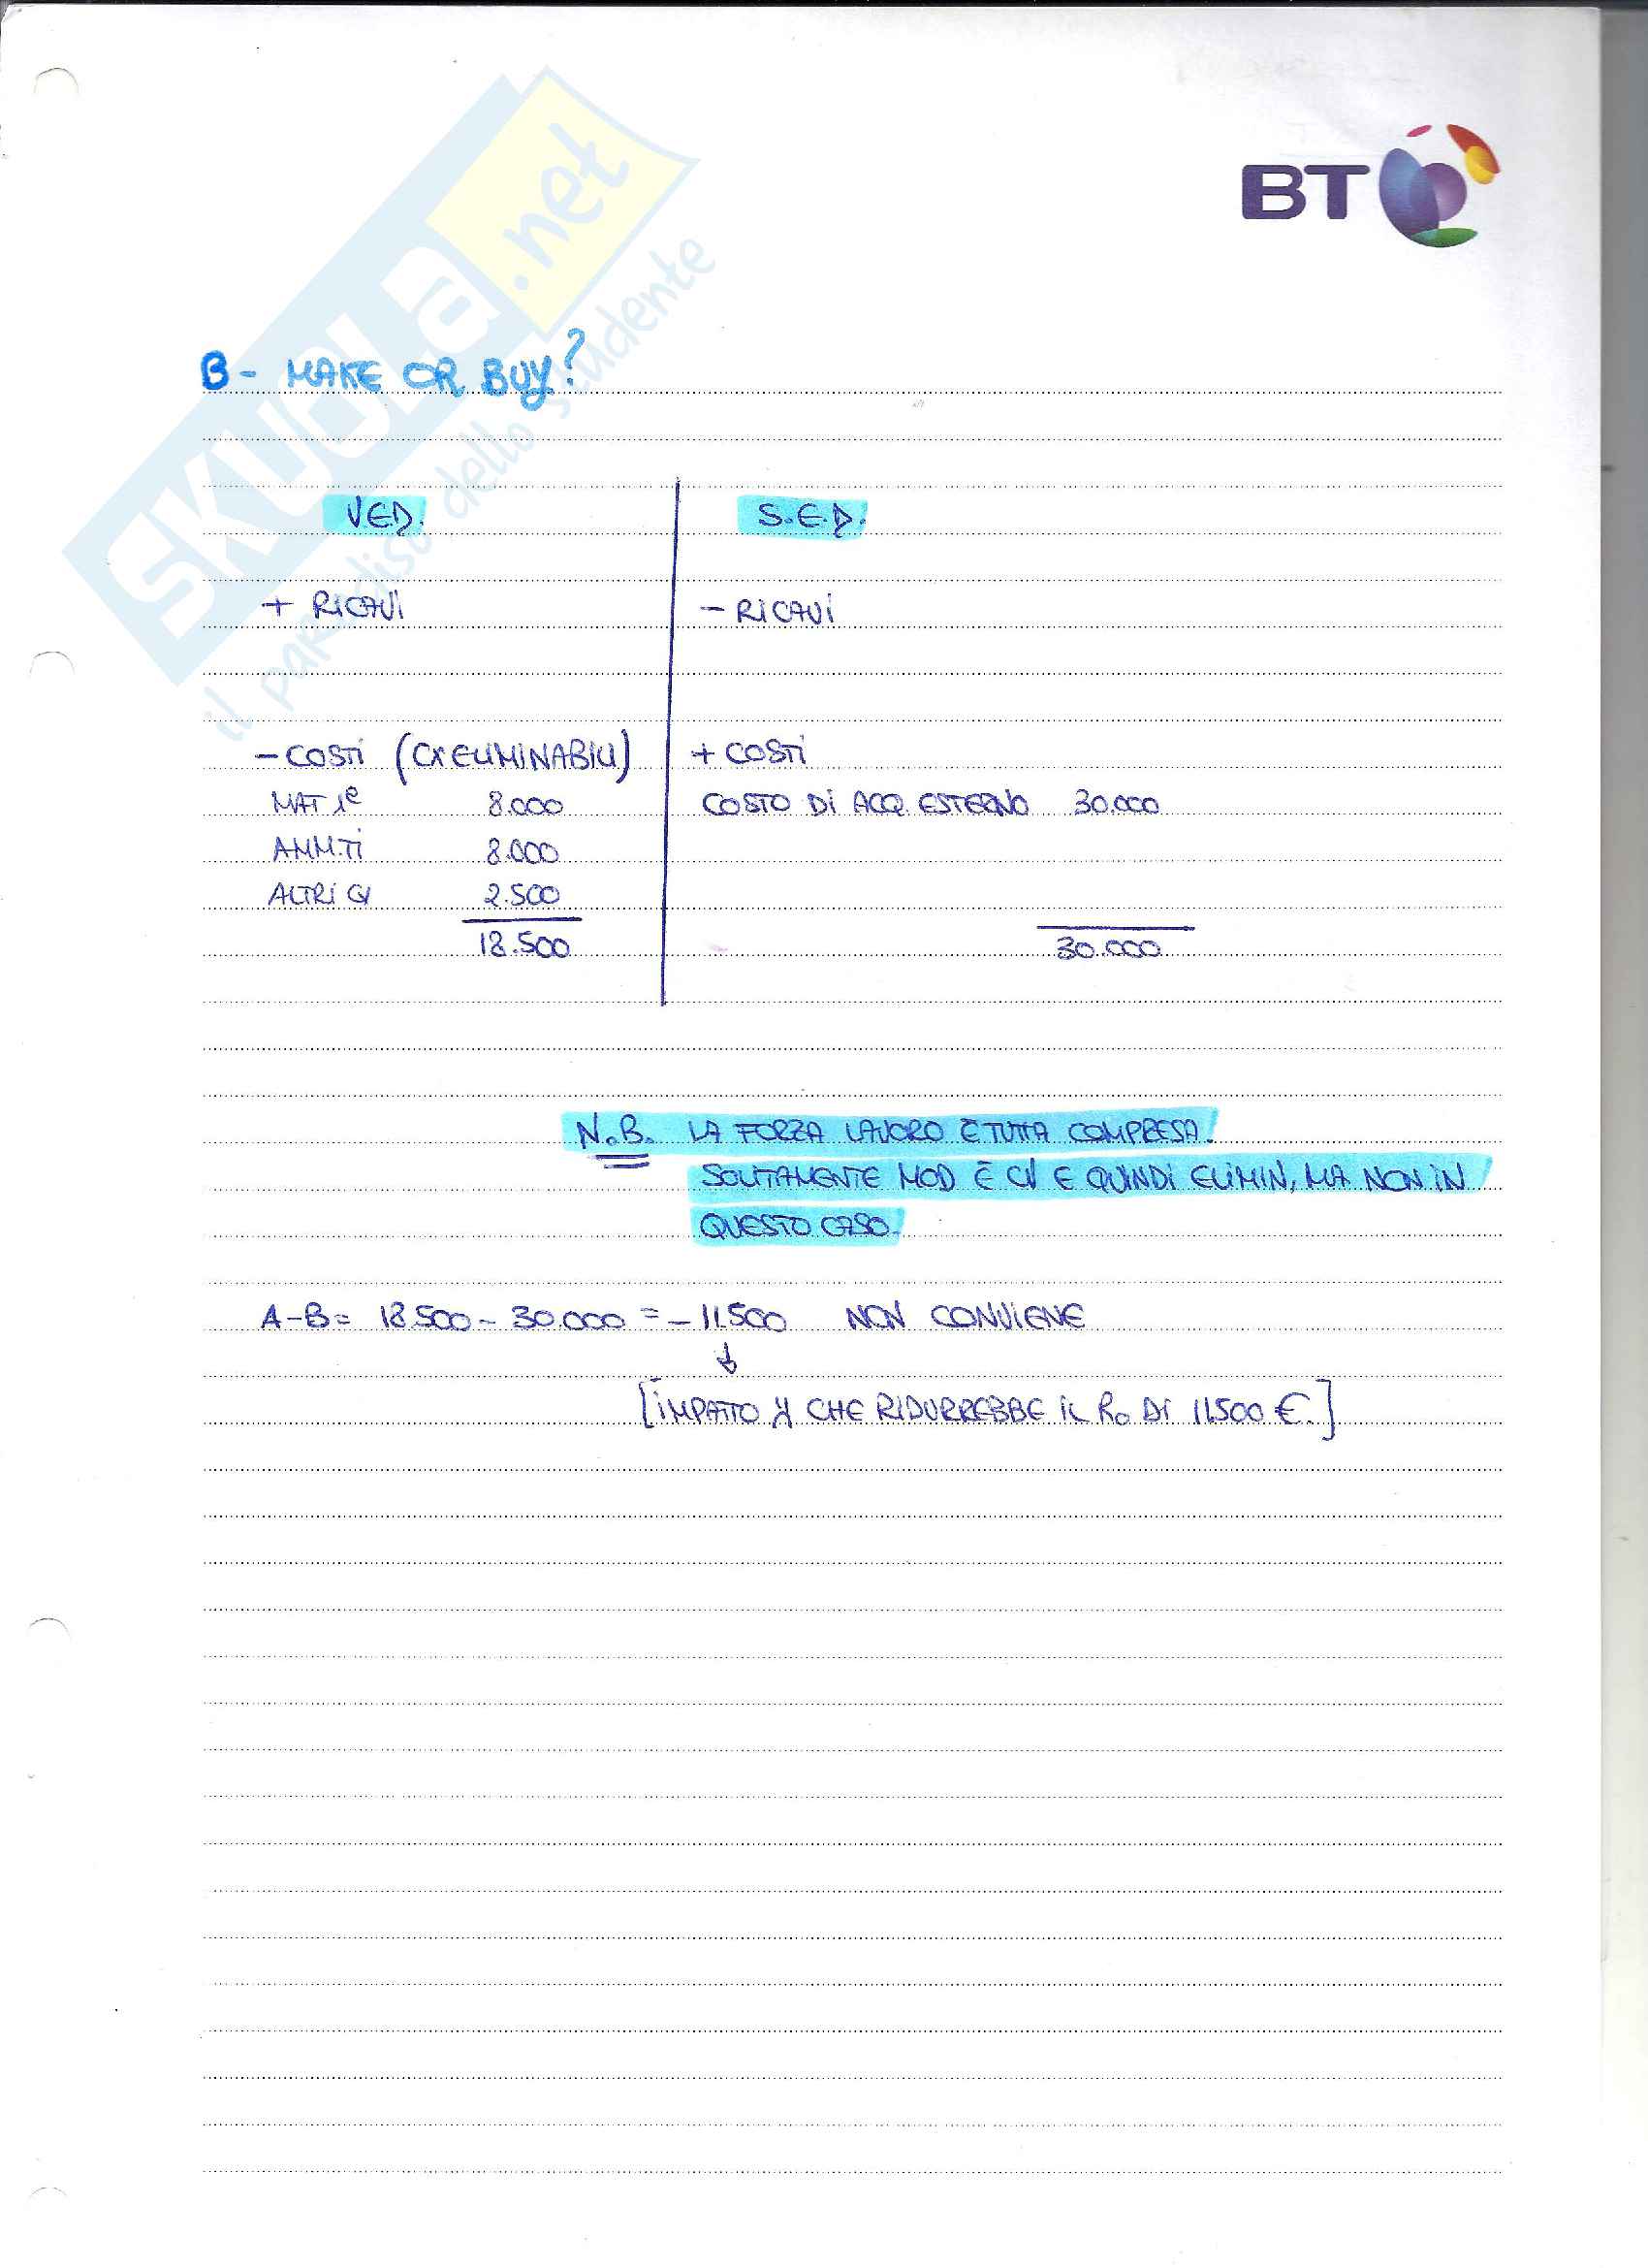 BT
SKUOLA.net
il paradiso dello studente
B - MAKE OR BUY?
V.E.D. S.E.D.
+ RICAVI - RICAVI
- COSTI (CX ELIMINABILI) + COSTI
MAT 1e 8.000 COSTO DI ACQ. ESTERNO 30.000
AMM.TI 8.000
ALTRI CV 2.500
18.500 30.000
N.B. LA FORZA LAVORO È TUTTA COMPRESA.
SOLITAMENTE MOD È CV E QUINDI ELIMIN, MA NON IN
QUESTO CASO.
A-B = 18.500 - 30.000 = - 11.500 NON CONVIENE
↓
[IMPATTO CHE RIDURREBBE IL Ro DI 11.500 €.]